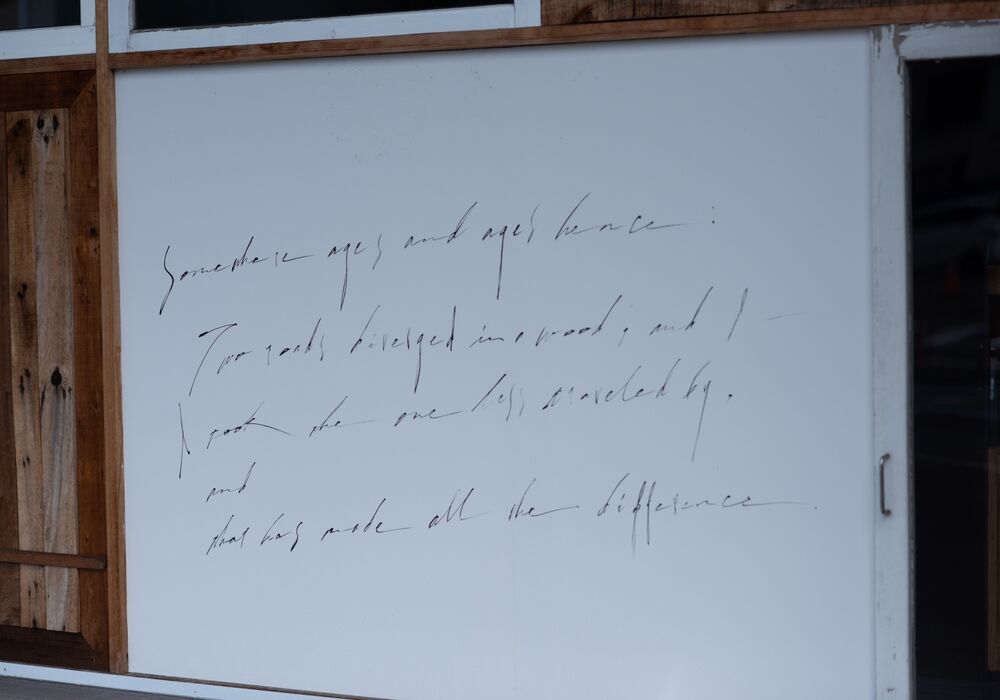 Somewhere ages and ages hence:
Two roads diverged in a wood, and I –
I took the one less traveled by.
and
that has made all the difference.